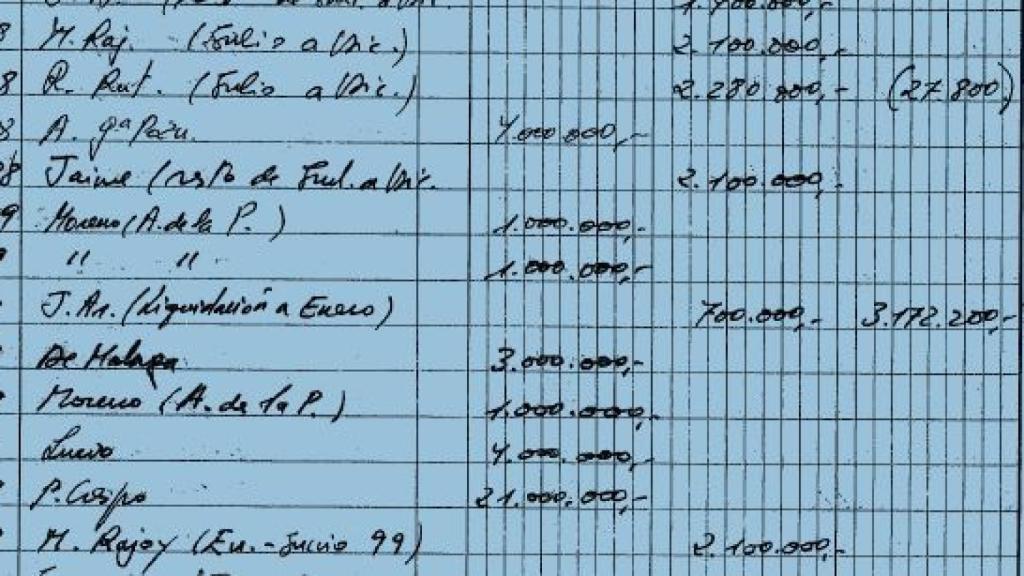 1.700.000,-
8 M. Raj. (Julio a Dic.) 2.100.000,-
8 R. Rat. (Julio a Dic.) 2.280.000,- (27.800)
8 A. Gª Paín. 4.000.000,-
98 Jaime (resto de Jul. a Dic. 2.100.000,-
9 Moreno (A. de la P.) 1.000.000,-
" " 1.000.000,-
J. Ar. (Liquidación a Enero) 700.000,- 3.172.200,-
De Málaga 3.000.000,-
Moreno (A. de la P.) 1.000.000,-
4.000.000,-
P. Crespo 21.000.000,-
M. Rajoy (En. - Junio 99) 2.100.000,-